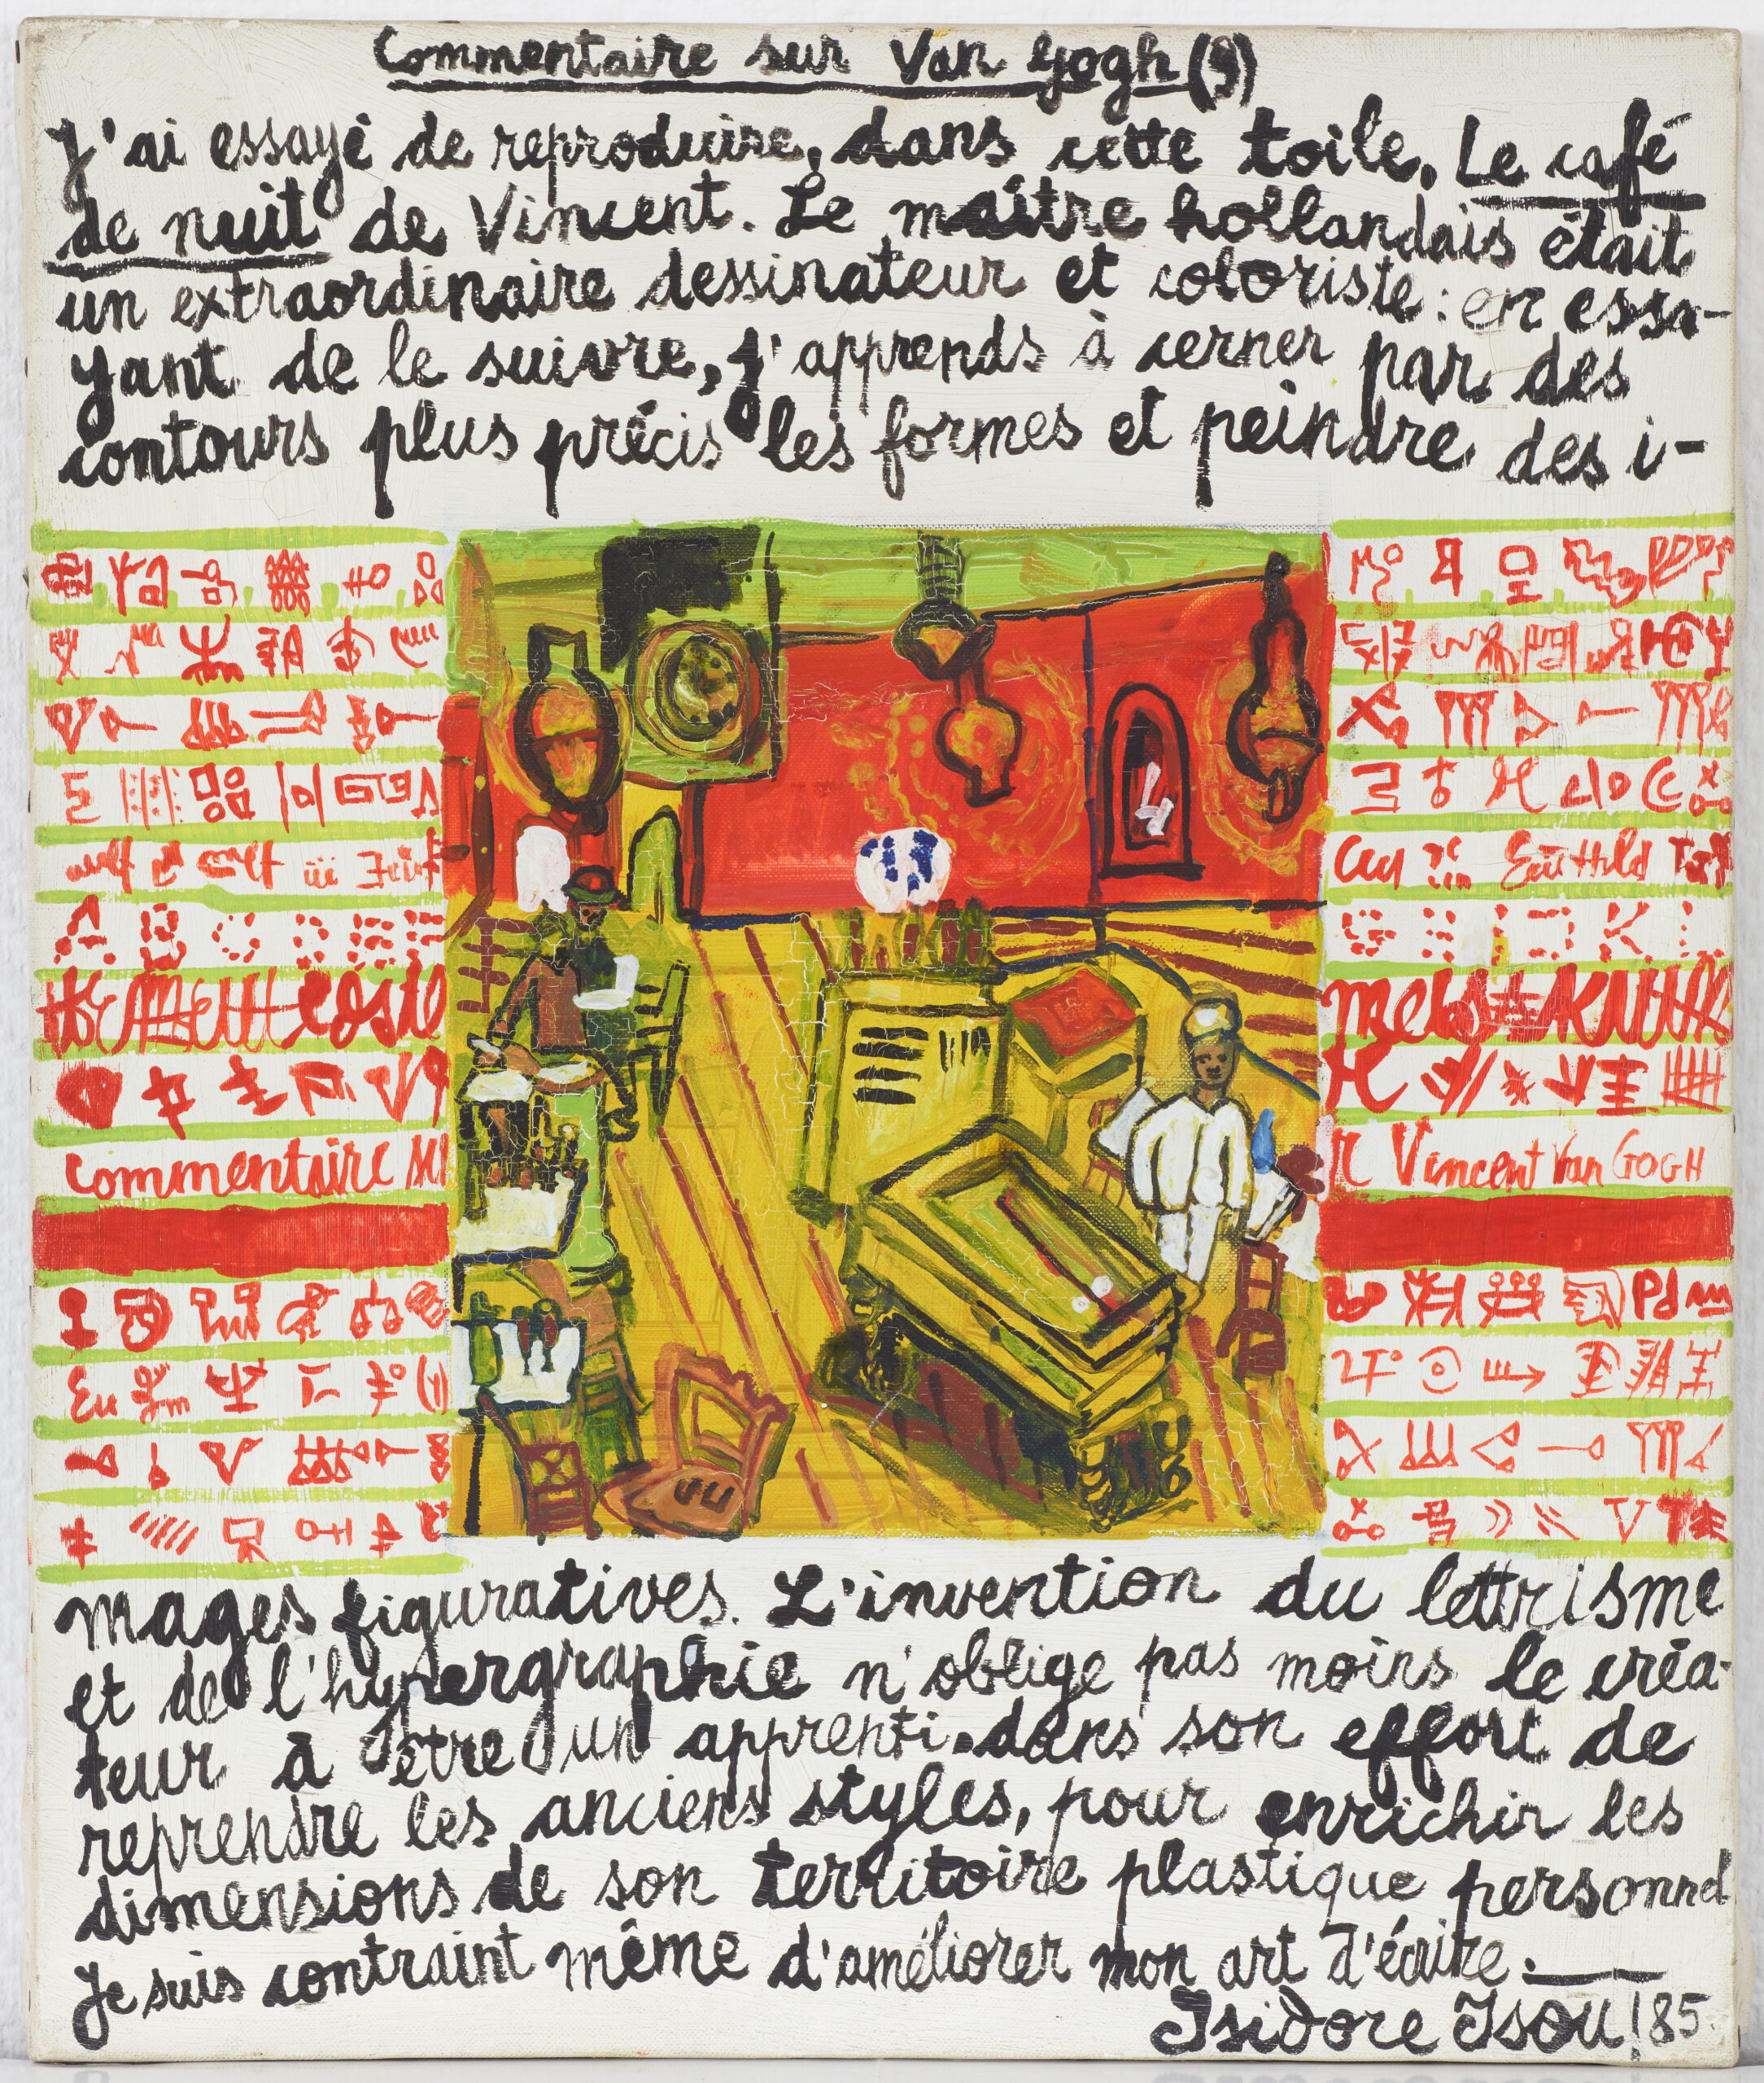 Commentaire sur Van Gogh (9)
J'ai essayé de reproduire, dans cette toile, Le café
de nuit de Vincent. Le maître hollandais était
un extraordinaire dessinateur et coloriste : en essa-
yant de le suivre, j'apprends à cerner par des
contours plus précis les formes et peindre des i-
commentaire su
r Vincent Van GOGH
mages figuratives. L'invention du lettrisme
et de l'hypergraphie n'oblige pas moins le créa-
teur à être un apprenti, dans son effort de
reprendre les anciens styles, pour enrichir les
dimensions de son territoire plastique personnel
Je suis contraint même d'améliorer mon art d'écrire.
Isidore Isou / 85